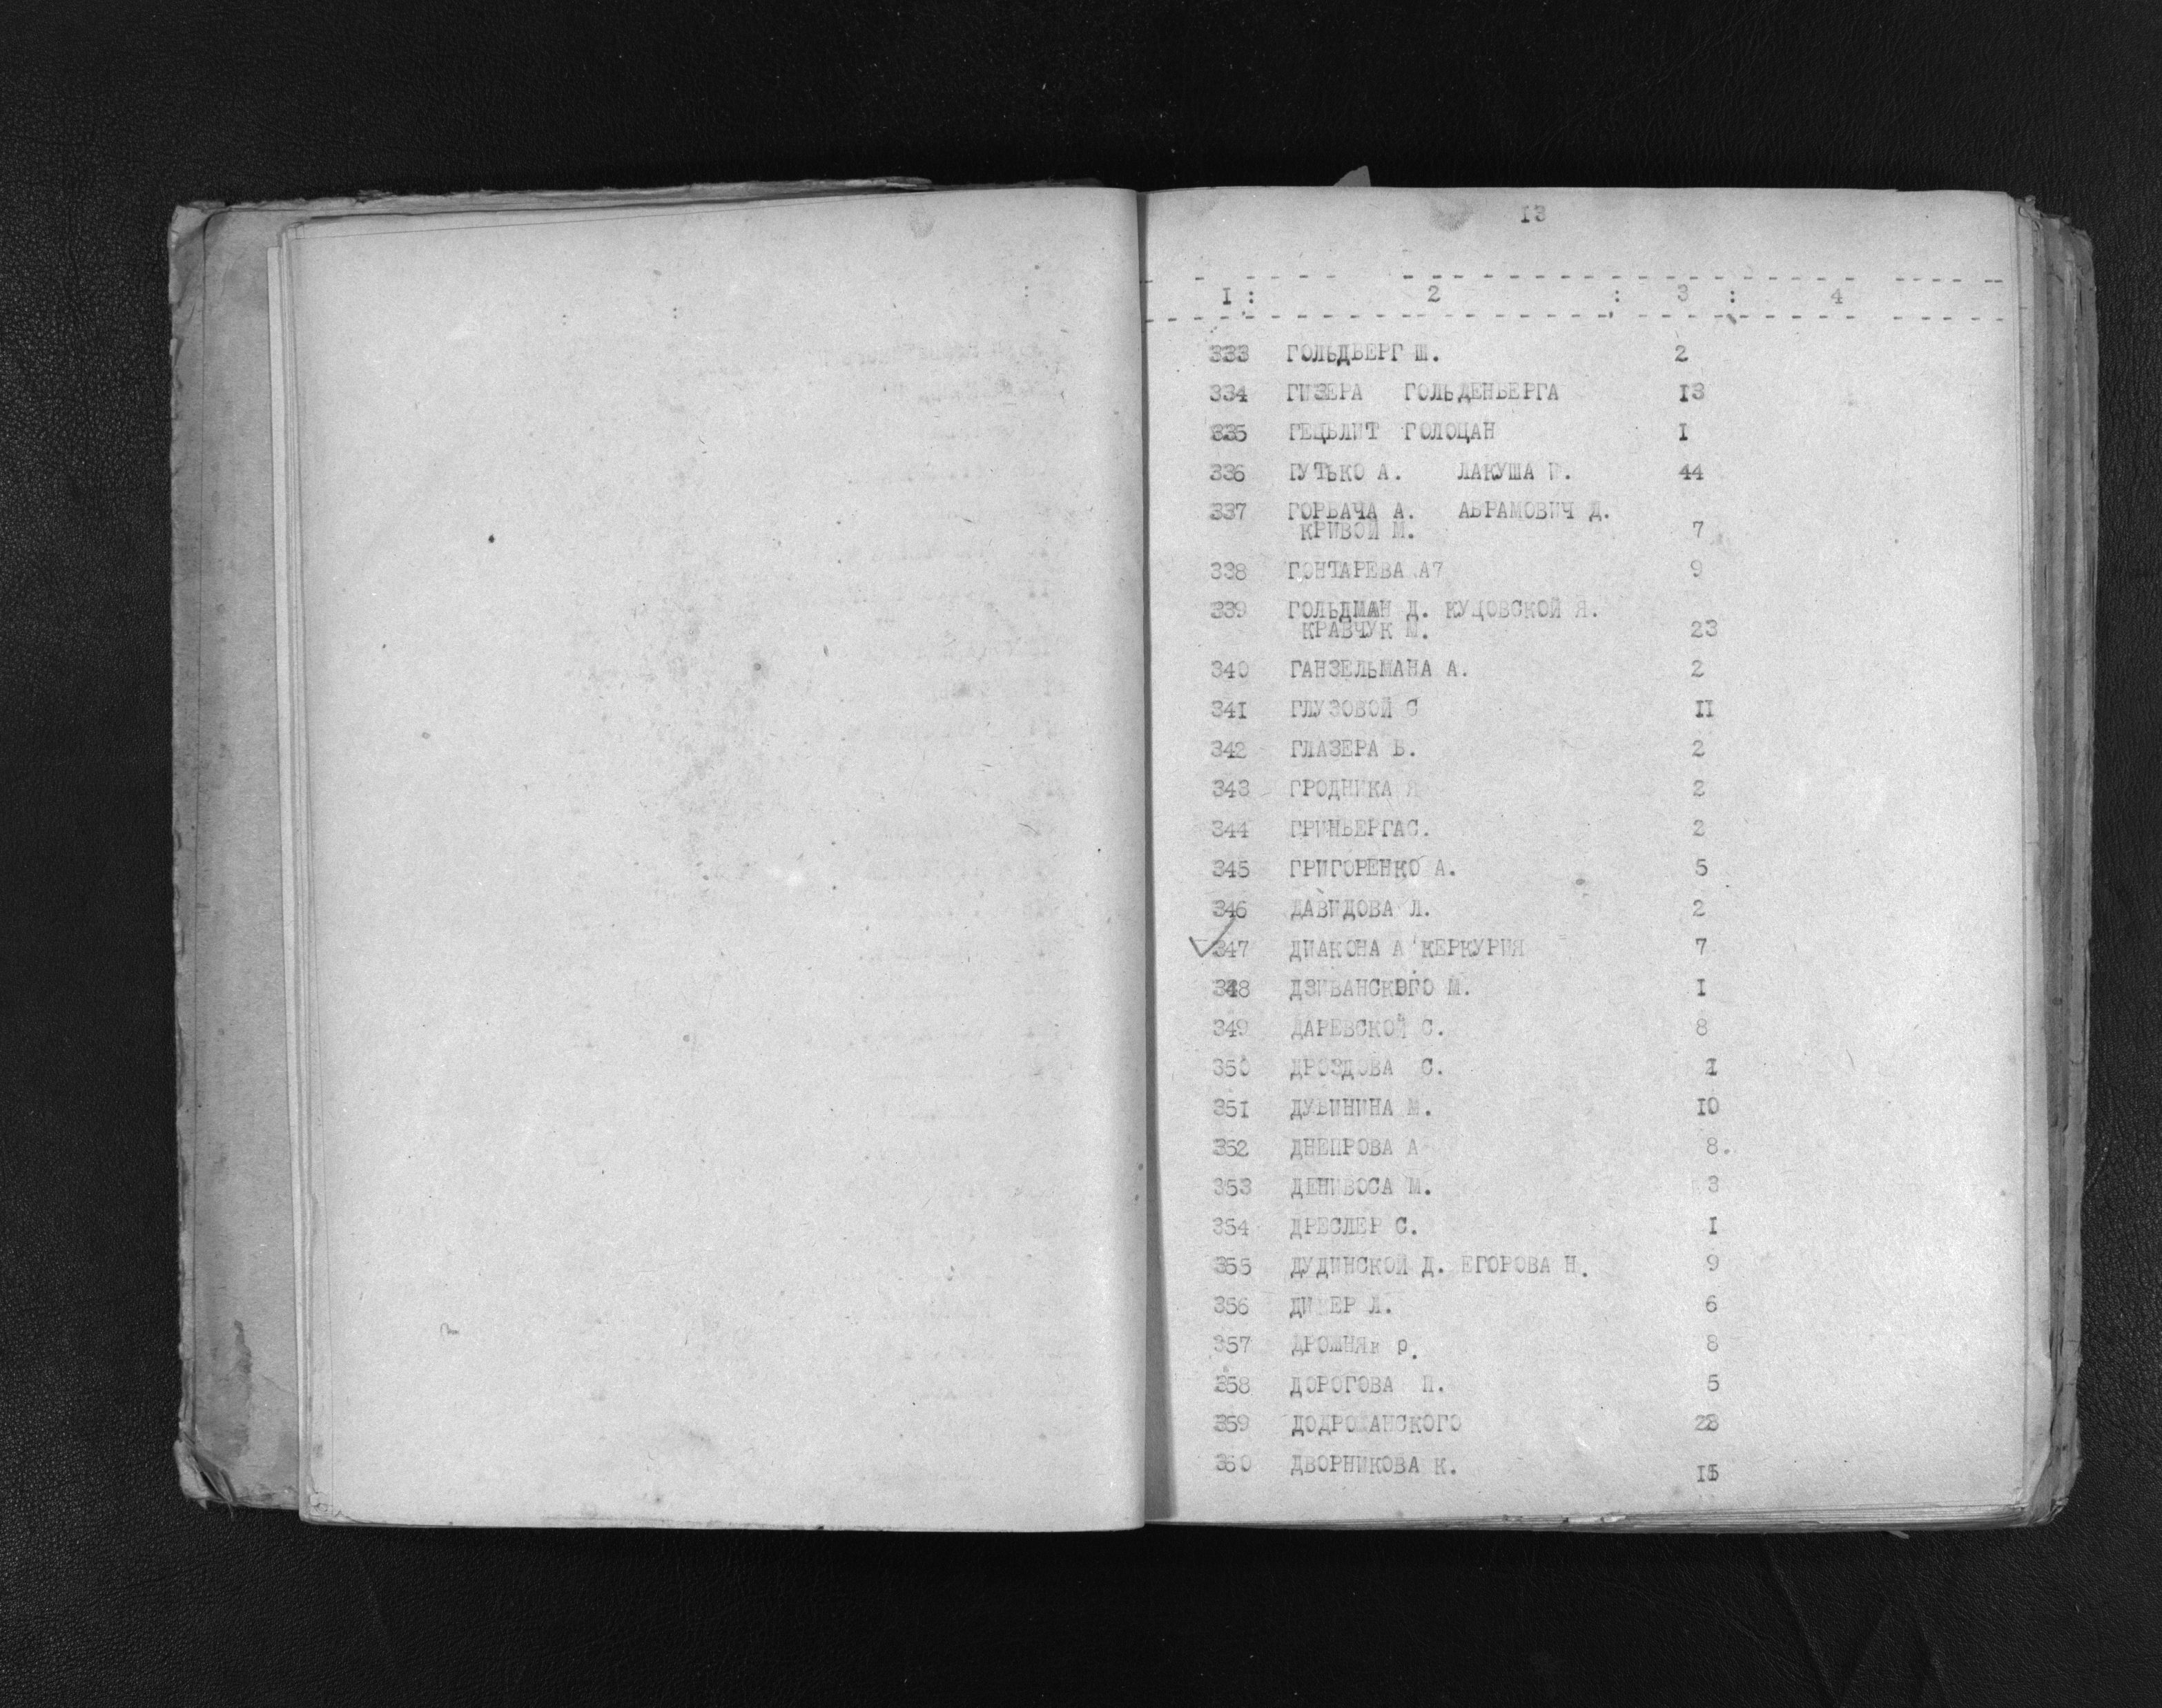 13
I : 2 : 3 : 4
333 ГОЛЬДБЕРГ Ш. 2
334 ГИЗЕРА ГОЛЬДЕНБЕРГА I3
335 ГЕЦБЛИТ ГОЛОЦАН I
336 ГУТЬКО А. ЛАКУША И. 44
337 ГОРБАЧА А. АБРАМОВИЧ Д.
КРИВОЙ М. 7
338 ГОНТАРЕВА А7 9
339 ГОЛЬДМАН Д. КУЦОВСКОЙ Я.
КРАВЧУК М. 23
340 ГАНЗЕЛЬМАНА А. 2
34I ГЛУЗОВОЙ С II
342 ГЛАЗЕРА Б. 2
343 ГРОДНИКА Я 2
344 ГРИНБЕРГАС. 2
345 ГРИГОРЕНКО А. 5
346 ДАВИДОВА Л. 2
347 ДИАКОНА А КЕРКУРИЯ 7
348 ДЗИВАНСКОГО М. I
349 ДАРЕВСКОЙ С. 8
350 ДРОЗДОВА С.
35I ДУБИНИНА М. I0
352 ДНЕПРОВА А 8.
353 ДЕНИВОСА М. 3
354 ДРЕСЛЕР С. I
355 ДУДИНСКОЙ Д. ЕГОРОВА Н. 9
356 Л. 6
357 ДРОМНЯк р. 8
358 ДОРОГОВА П. 5
359
360 ДВОРНИКОВА К.